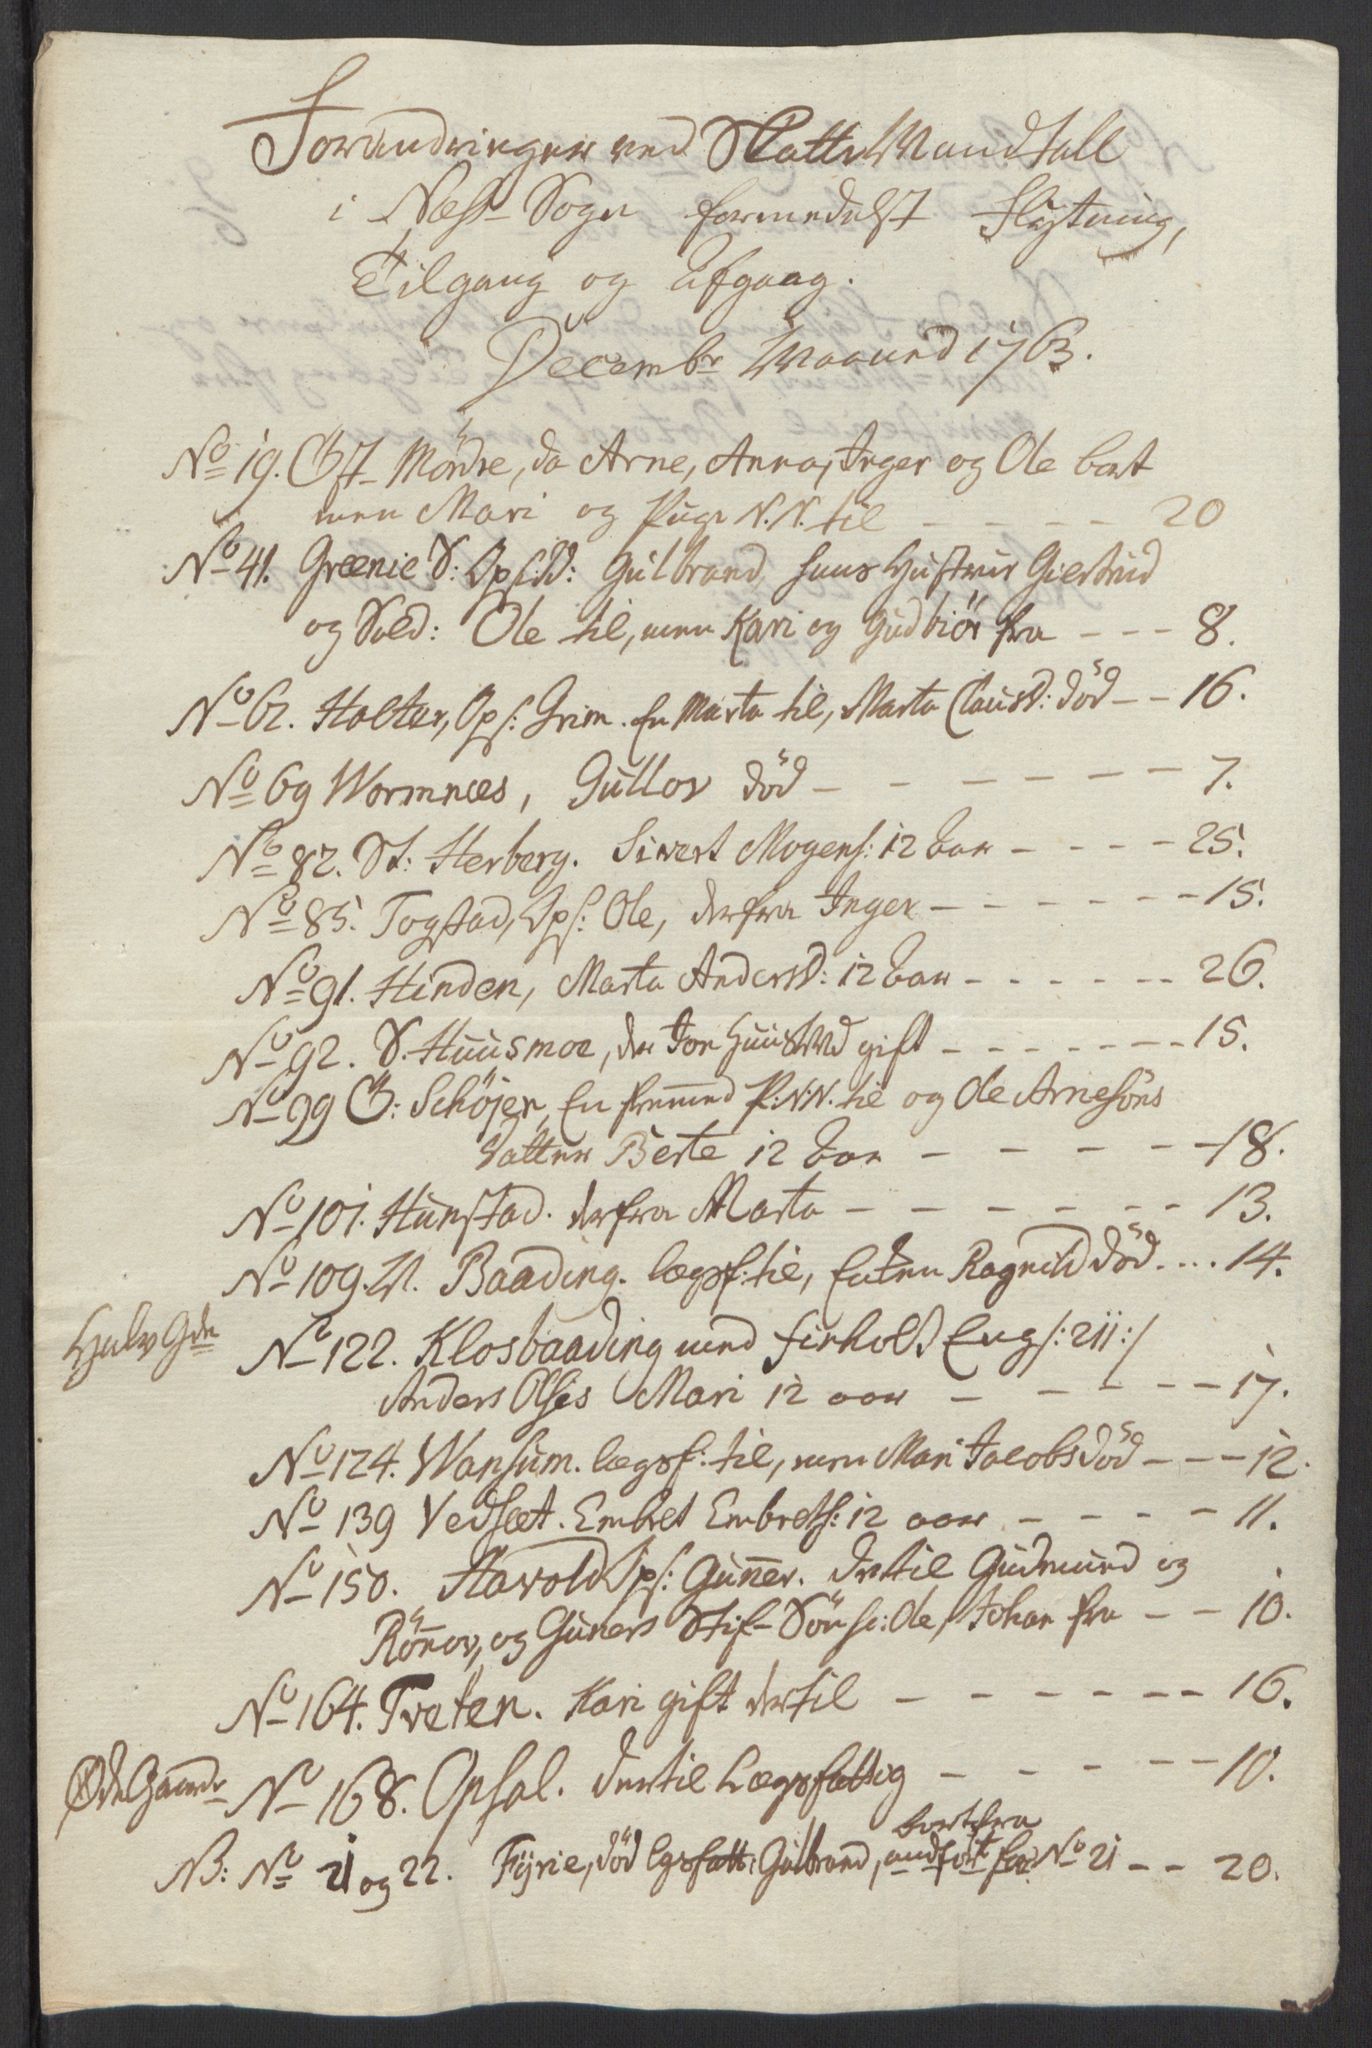 Forandringer ved Skatte Mandtall
i Næss Sogn formedelst Flytning,
Tilgang og Afgang.
Decembr Maaned 1763.
No 19. Øst Mördre, da Arne, Anna, Inger og Ole bort
men Mari og Pige N.N. til - - - - 20
No 41. Grænie S: Ops: Gulbrand hans Hustrue Giertrud
og Sold: Ole til, men Kari og Gudbiör fra - - - 8.
No 62. Holter, Ops: Grim. En Marta til, Marta Clausd: död - - 16.
No 69 Wormnæs, Gullov död - - - - - - 7.
No 82. St: Herberg. Sivert Mogens: 12 aar - - - - 25.
No 85. Togstad, Ops: Ole, derfra Inger - - - - - - 15.
No 91. Hinden, Marta Andersd: 12 aar - - - - - - 26.
No 92. S. Huusmoe, der Jon Huusmd gift - - - - - - - 15.
No 99 Ø: Schöjen, En fremmed P: N:N. til og Ole Arnesöns
Datter Berte 12 aar - - - - - 18.
No 101. Hunstad. derfra Marta - - - - - - - 13.
No 109. N. Baading. lægsf: til, Enken Ragnild död. ... 14.
Halv Gde
No 122. Klosbaading med Firhold Eng /:211:/
Anders Olses Mari 12 aar - - - - - 17.
No 124. Wansum. lægsf: til, men Mari Jacobsd död - - - 12.
No 139 Vedsæt. Embret Embrets: 12 aar - - - - 11.
No 150. Harold Ops: Gunner. dertil Gudmund og
Rönnov, og Guners Stif-Sön sc: Ole, Johan fra - - 10.
No 164. Tveten. Kari gift dertil - - - - - - - 16.
Øde Gaarde
No 168. Opsal. dertil Lægsfattig - - - - - - 10.
bortfra
NB: No 21 og 22. Fyrie, död lgsfatt: Gulbrand, No 21 - - 20.